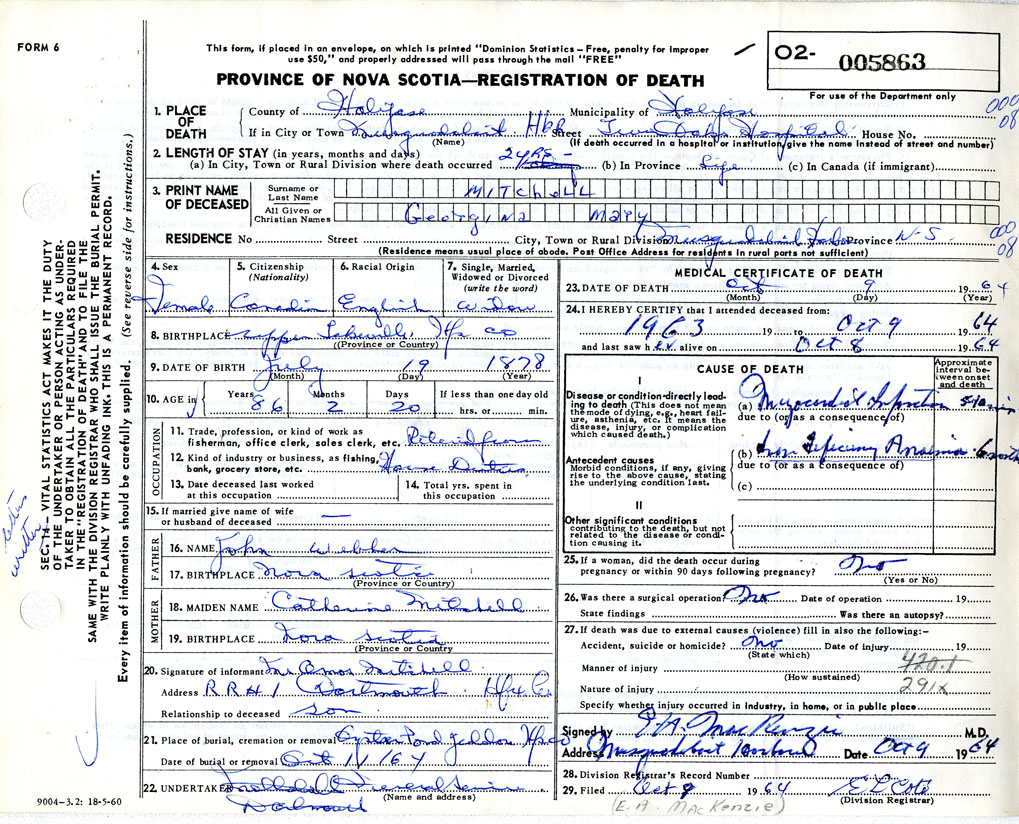 FORM 6
This form, if placed in an envelope, on which is printed "Dominion Statistics – Free, penalty for improper
use $50," and properly addressed will pass through the mail "FREE"
O2- 005863
For use of the Department only
PROVINCE OF NOVA SCOTIA—REGISTRATION OF DEATH
000
08
1. PLACE OF DEATH County of Halifax Municipality of Halifax
If in City or Town Musquodoboit Hbr Street Twin Oaks Hospital House No.
(Name) (If death occurred in a hospital or institution, give the name instead of street and number)
2. LENGTH OF STAY (in years, months and days)
(a) In City, Town or Rural Division where death occurred 2 yrs - (b) In Province Life (c) In Canada (if immigrant)
3. PRINT NAME OF DECEASED
Surname or Last Name MITchell
All Given or Christian Names Georgina Mary
RESIDENCE No Street City, Town or Rural Division Musquodoboit Harbor Province N-S.
000
08
(Residence means usual place of abode. Post Office Address for residents in rural parts not sufficient)
4. Sex Female
5. Citizenship (Nationality) Canadian
6. Racial Origin English
7. Single, Married, Widowed or Divorced (write the word) widow
8. BIRTHPLACE upper Lakeville, Hfx co
(Province or Country)
9. DATE OF BIRTH July 19 1878
(Month) (Day) (Year)
10. AGE in Years 86 Months 2 Days 20 If less than one day old hrs. or min.
OCCUPATION
11. Trade, profession, or kind of work as
fisherman, office clerk, sales clerk, etc.
12. Kind of industry or business, as fishing,
bank, grocery store, etc. House Duties
13. Date deceased last worked at this occupation
14. Total yrs. spent in this occupation
15. If married give name of wife
or husband of deceased —
FATHER
16. NAME John Webber
17. BIRTHPLACE Nova Scotia
(Province or Country)
MOTHER
18. MAIDEN NAME Catherine Mitchell
19. BIRTHPLACE Nova Scotia
(Province or Country)
20. Signature of informant Mr Amos Mitchell
Address RR#1 Dartmouth Hfx Co
Relationship to deceased son
21. Place of burial, cremation or removal Oyster Pond Jeddore Hfx co
Date of burial or removal Oct 11/64
22. UNDERTAKER Funeral Service
(Name and address)
Dartmouth
9004-3.2: 18-5-60
MEDICAL CERTIFICATE OF DEATH
23. DATE OF DEATH Oct 9 1964
(Month) (Day) (Year)
24. I HEREBY CERTIFY that I attended deceased from:
1963 19 to Oct 9 1964
and last saw her alive on Oct 8 1964
CAUSE OF DEATH
Approximate interval between onset and death
I
Disease or condition directly leading to death (This does not mean the mode of dying, e.g., heart failure, asthenia, etc. It means the disease, injury, or complication which caused death.)
(a) Myocardial Infarction
due to (or as a consequence of)
Antecedent causes
Morbid conditions, if any, giving rise to the above cause, stating the underlying condition last.
(b) Iron Deficiency Anaemia 6 months
due to (or as a consequence of)
(c)
II
Other significant conditions
contributing to the death, but not related to the disease or condition causing it.
25. If a woman, did the death occur during
pregnancy or within 90 days following pregnancy? No
(Yes or No)
26. Was there a surgical operation? No Date of operation 19
State findings Was there an autopsy?
27. If death was due to external causes (violence) fill in also the following:–
Accident, suicide or homicide? No Date of injury 19
(State which)
420.1
Manner of injury
(How sustained)
291X
Nature of injury
Specify whether injury occurred in industry, in home, or in public place
Signed by E.A. MacKenzie M.D.
Address Musquodoboit Harbour Date Oct 9 1964
28. Division Registrar's Record Number
29. Filed Oct 9 1964
(Division Registrar)
(E.A. MacKenzie)
SEC. 14 – VITAL STATISTICS ACT MAKES IT THE DUTY
OF THE UNDERTAKER OR PERSON ACTING AS UNDER-
TAKER TO OBTAIN ALL THE PARTICULARS REQUIRED
IN THE "REGISTRATION OF DEATH" AND TO FILE THE
SAME WITH THE DIVISION REGISTRAR WHO SHALL ISSUE THE BURIAL PERMIT.
WRITE PLAINLY WITH UNFADING INK. THIS IS A PERMANENT RECORD.
Every item of information should be carefully supplied. (See reverse side for instructions.)
letter
written